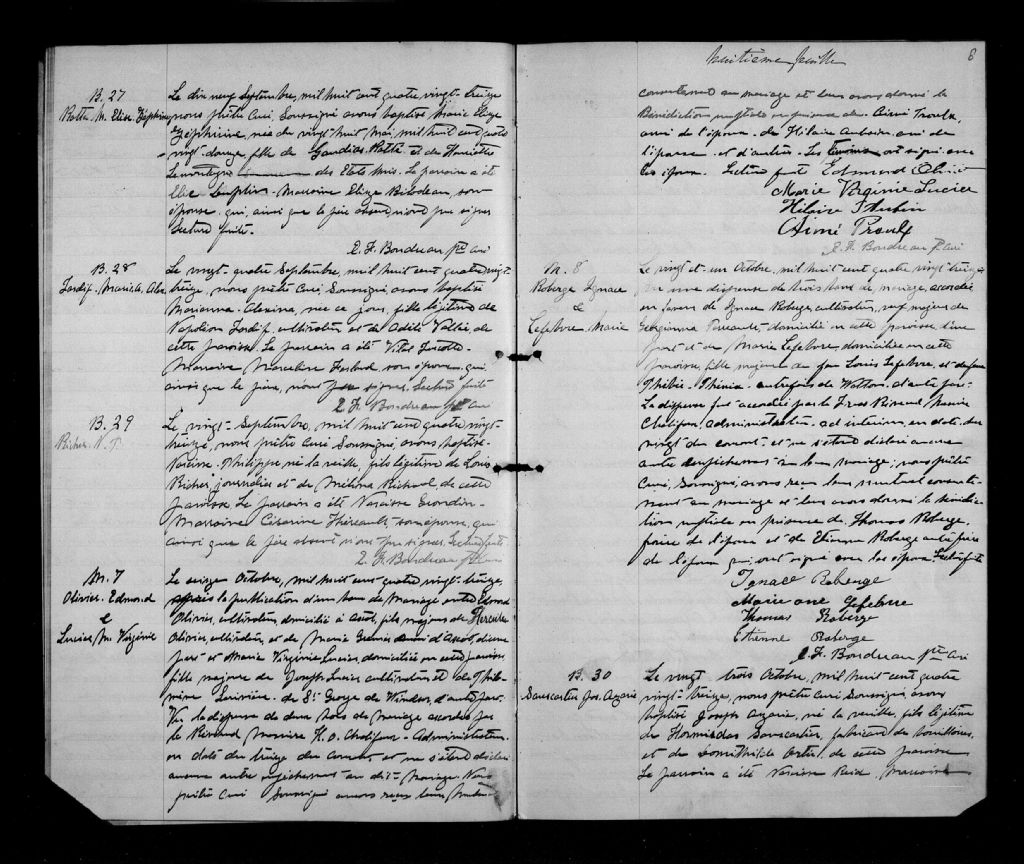 B. 27
Ratté M. Elise Zéphirine
Le dix neuf Septembre, mil huit cent quatre vingt-treize
nous prêtre Curé, Soussigné avons baptisé Marie Elise
Zéphirine, née du vingt-huit Mai, mil huit cent quatre
vingt-douze, fille de Ratté et de Henriette
des Etats Unis. Le parrain a été
Marraine Elise Bilodeau, son
épouse qui, ainsi que le père absent n'ont pu signer
Lecture faite.
E. F. Boudreau ptre curé
B. 28
Tardif. Marie A. Alex.
Le vingt quatre Septembre, mil huit cent quatre vingt-
treize, nous prêtre Curé, Soussigné avons baptisé
Marianna Alexina, née ce jour, fille légitime de
Napoléon Tardif, cultivateur et de Adèle Vallée, de
cette paroisse. Le parrain a été Vital Turcotte
Marraine Marceline son épouse, qui,
ainsi que le père, n'ont pu signer. Lecture faite
E. F. Boudreau ptre curé
B. 29
Richer. N. P.
Le vingt- Septembre, mil huit cent quatre vingt-
treize, nous prêtre Curé Soussigné, avons baptisé
Narcisse Philippe né la veille, fils légitime de Louis
Richer journalier et de Mélina Richard de cette
paroisse. Le parrain a été Narcisse Grondin
Marraine Césarine Thérault, son épouse, qui
ainsi que le père absent n'ont pu signer. Lecture faite
E. F. Boudreau ptre curé
M. 7
Olivier. Edmond
&
Lucier, M. Virginie
Le seize Octobre, mil huit cent quatre vingt-treize,
après la publication d'un ban de Mariage entre Edmond
Olivier, cultivateur, domicilié à Ascot, fils majeur de Hercule
Olivier, cultivateur, et de Marie aussi d'Ascot, d'une
part et Marie Virginie Lucier, domiciliée en cette paroisse
fille majeure de Joseph Lucier cultivateur et de Philo-
mène Larivière de St George de Windsor, d'autre part.
Vu la dispense de deux bans de mariage accordée par
le Révérend Monsieur H. O. Chalifoux Administrateur
en date du treize du courant, et ne s'étant déclaré
aucun autre empêchement au dit Mariage. Nous
prêtre Curé Soussigné avons reçu leur mutuel
huitième feuille
8
consentement au mariage et leur avons donné la
Bénédiction nuptiale en présence de Aimé Proulx,
ami de l'époux de Hilaire Aubin, ami de
l'épouse et d'autres. Les témoins ont signé avec
les époux. Lecture faite Edmond Olivier
Marie Virginie Lucier
Hilaire Aubin
Aimé Proulx
E. F. Boudreau ptre curé
M. 8
Roberge Ignace
&
Lefebvre Marie
Le vingt et un Octobre, mil huit cent quatre vingt-treize
vu une dispense de trois bans de mariage, accordée
en faveur de Ignace Roberge, cultivateur, veuf majeur de
Georgianna domiciliée en cette paroisse d'une
part et de Marie Lefebvre, domiciliée en cette
paroisse, fille majeure de feu Louis Lefebvre, et de feue
autrefois de Wotton d'autre part.
La dispense fut accordée par le Très Révérend Monsieur
Chalifoux, administrateur ad interim, en date du
vingt du courant et ne s'étant déclaré aucun
autre empêchement à leur mariage; nous prêtre
Curé, Soussigné, avons reçu leur mutuel consente-
ment au mariage et leur avons donné la bénédic-
tion nuptiale en présence de Thomas Roberge,
frère de l'époux et de Etienne Roberge autre frère
de l'époux qui ont signé avec les époux. Lecture faite
Ignace Roberge
Marie Lefebvre
Thomas Roberge
Etienne Roberge
E. F. Boudreau ptre curé
B. 30
Sanscartier Jos. Azarie
Le vingt trois Octobre, mil huit cent quatre
vingt-treize, nous prêtre Curé Soussigné avons
baptisé Joseph Azarie, né la veille, fils légitime
de Hormisdas Sanscartier, fabricant de
et de de cette paroisse
Le parrain a été Narcisse Marraine